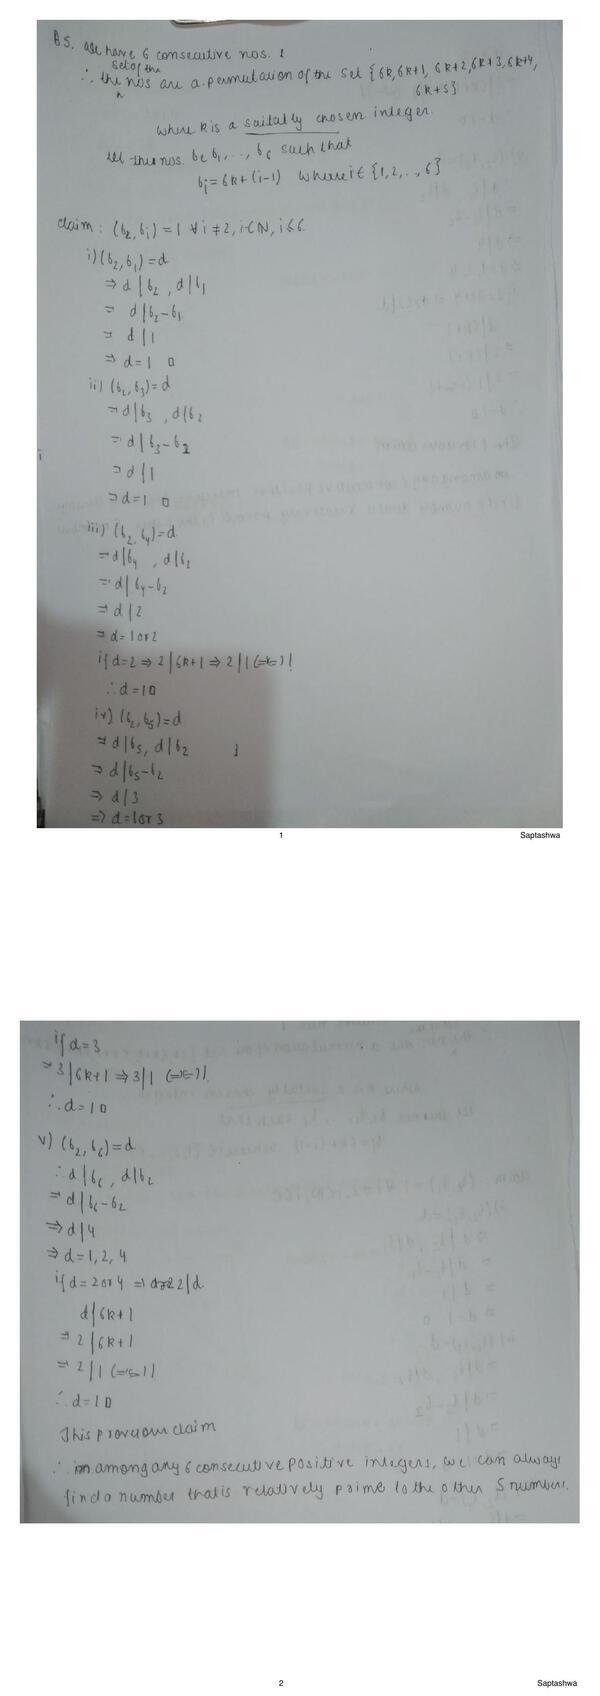 B5. we have 6 consecutive nos.
set of the
∴ the nos are a permutation of the set {6k, 6k+1, 6k+2, 6k+3, 6k+4,
6k+5}
where k is a suitably chosen integer.
let these nos. be b₁, ..., b₆ such that
bᵢ = 6k + (i-1) where i ∈ {1,2,..,6}
claim: (b₂, bᵢ) = 1 ∀ i ≠ 2, i ∈ N, i ≤ 6
i) (b₂, b₁) = d
⇒ d | b₂ , d | b₁
⇒ d | b₂ - b₁
⇒ d | 1
⇒ d = 1 □
ii) (b₂, b₃) = d
⇒ d | b₃ , d | b₂
⇒ d | b₃ - b₂
⇒ d | 1
⇒ d = 1 □
iii) (b₂, b₄) = d
⇒ d | b₄ , d | b₂
⇒ d | b₄ - b₂
⇒ d | 2
⇒ d = 1 or 2
if d = 2 ⇒ 2 | 6k+1 ⇒ 2 | 1 (⇒⇐)!
∴ d = 1 □
iv) (b₂, b₅) = d
⇒ d | b₅, d | b₂
⇒ d | b₅ - b₂
⇒ d | 3
⇒ d = 1 or 3
1
Saptashwa
if d = 3
⇒ 3 | 6k+1 ⇒ 3 | 1 (⇒⇐)!
∴ d = 1 □
v) (b₂, b₆) = d
∴ d | b₆ , d | b₂
⇒ d | b₆ - b₂
⇒ d | 4
⇒ d = 1, 2, 4
if d = 2 or 4 ⇒ 2 | d
d | 6k+1
⇒ 2 | 6k+1
⇒ 2 | 1 (⇒⇐)!
∴ d = 1 □
This proves our claim
∴ among any 6 consecutive positive integers, we can always
find a number that is relatively prime to the other 5 numbers.
2
Saptashwa